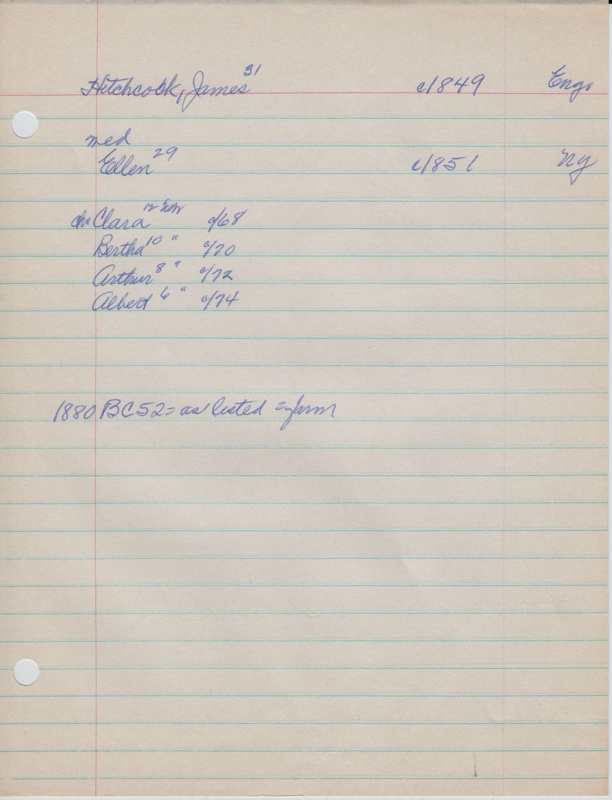 Hitchcock, James 31 c/1849 Eng.
med
Ellen 29 c/1851 NY
ch. Clara 12 c/68
Bertha 10 " c/70
Arthur 8 " c/72
Albert 6 " c/74
1880 BC52 = as listed = farm